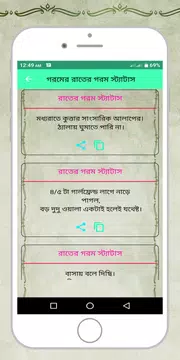 12:49 AM
গরমের রাতের গরম স্ট্যাটাস
রাতের গরম স্ট্যাটাস
মধ্যরাতে কুত্তার সাংসারিক আলাপের।
ঠ্যালায় ঘুমাতে পারি না।
রাতের গরম স্ট্যাটাস
৪/৫ টা গার্লফ্রেন্ড লাগে নাড়ে
পাগল,
বড় দুদু ওয়ালা একটাই হলেই যথেষ্ট।
রাতের গরম স্ট্যাটাস
বাসায় বলে দিছি।